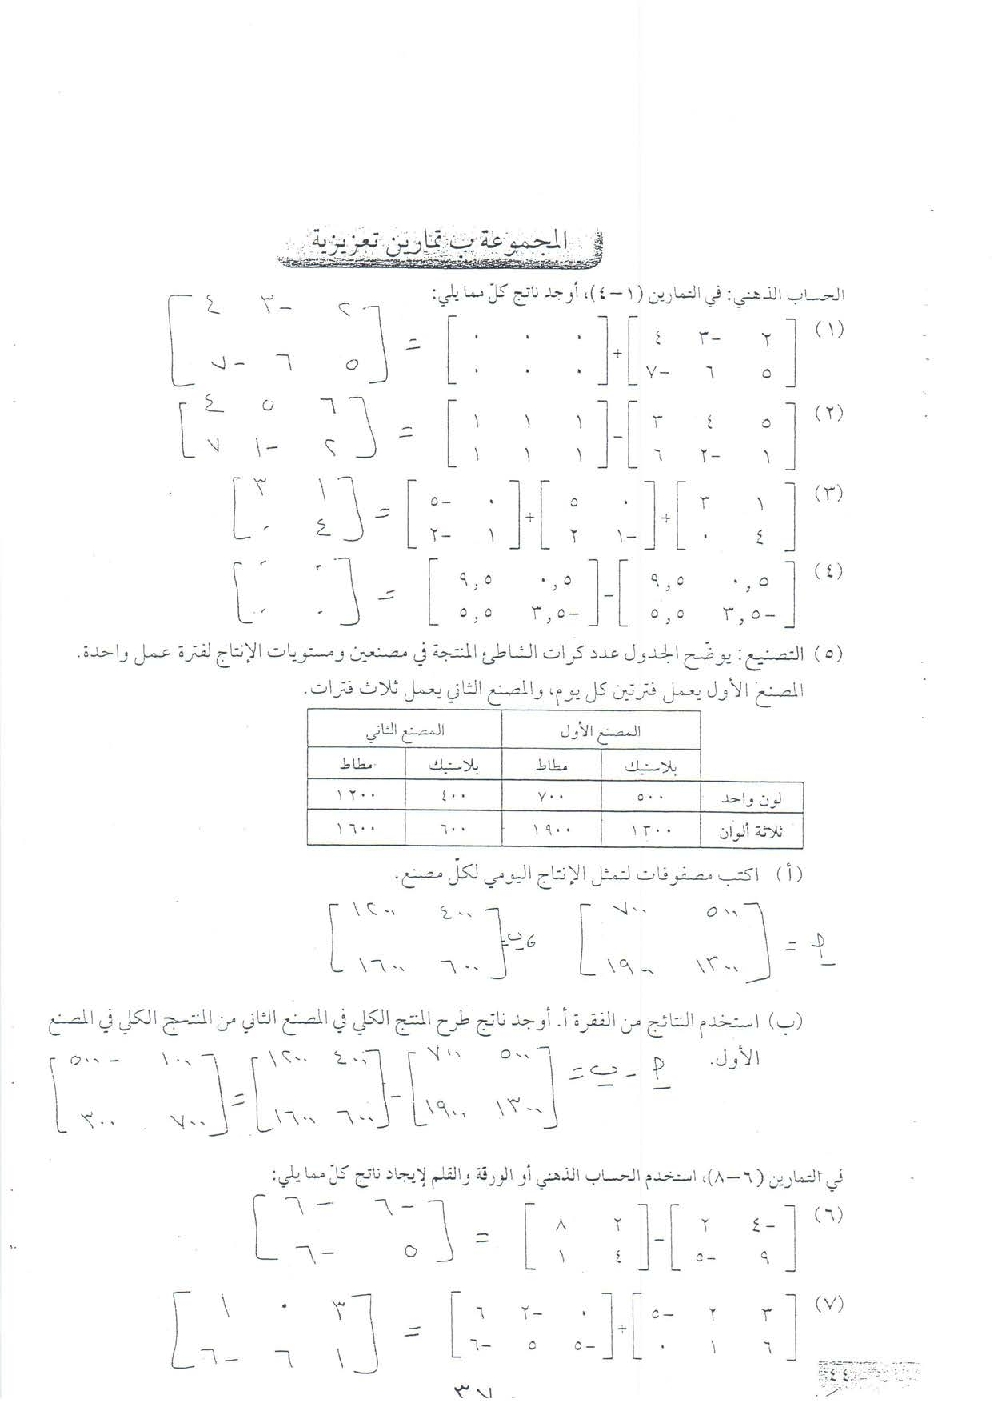 المجموعة ب تمارين تعزيزية
الحساب الذهني: في التمارين (١-٤)، أوجد ناتج كلّ مما يلي:
(١) [٢ -٣ ٤ ; ٥ ٦ -٧] + [٠ ٠ ٠ ; ٠ ٠ ٠] = [٢ -٣ ٤ ; ٥ ٦ -٧]
(٢) [٥ ٤ ٣ ; ١ -٢ ٦] - [١ ١ ١ ; ١ ١ ١] = [٦ ٥ ٤ ; ٢ -١ ٧]
(٣) [١ ٣ ; ٤ ٠] + [٠ ٥ ; -١ ٢] + [٠ -٥ ; ١ -٢] = [١ ٣ ; ٤ ٠]
(٤) [٠,٥ ٩,٥ ; -٣,٥ ٥,٥] - [٠,٥ ٩,٥ ; -٣,٥ ٥,٥] = [٠ ٠ ; ٠ ٠]
(٥) التصنيع: يوضّح الجدول عدد كرات الشاطئ المنتجة في مصنعين ومستويات الإنتاج لفترة عمل واحدة.
المصنع الأول يعمل فترتين كل يوم، والمصنع الثاني يعمل ثلاث فترات.
المصنع الأول المصنع الثاني
بلاستيك مطاط بلاستيك مطاط
لون واحد ٥٠٠ ٧٠٠ ٤٠٠ ١٢٠٠
ثلاثة ألوان ١٣٠٠ ١٩٠٠ ٦٠٠ ١٦٠٠
(أ) اكتب مصفوفات لتمثل الإنتاج اليومي لكلّ مصنع.
أ = [٥٠٠ ٧٠٠ ; ١٣٠٠ ١٩٠٠] ، ب = [٤٠٠ ١٢٠٠ ; ٦٠٠ ١٦٠٠]
(ب) استخدم النتائج من الفقرة أ. أوجد ناتج طرح المنتج الكلي في المصنع الثاني من المنتج الكلي في المصنع
الأول.
أ - ب = [٥٠٠ ٧٠٠ ; ١٣٠٠ ١٩٠٠] - [٤٠٠ ١٢٠٠ ; ٦٠٠ ١٦٠٠] = [١٠٠ -٥٠٠ ; ٧٠٠ ٣٠٠]
في التمارين (٦-٨)، استخدم الحساب الذهني أو الورقة والقلم لإيجاد ناتج كلّ مما يلي:
(٦) [-٤ ٢ ; ٩ -٥] - [٢ ٨ ; ٤ ١] = [-٦ -٦ ; ٥ -٦]
(٧) [٣ ٢ -٥ ; ٦ ١ ٠] + [٠ -٢ ٦ ; -٥ ٥ -٦] = [٣ ٠ ١ ; ١ ٦ -٦]